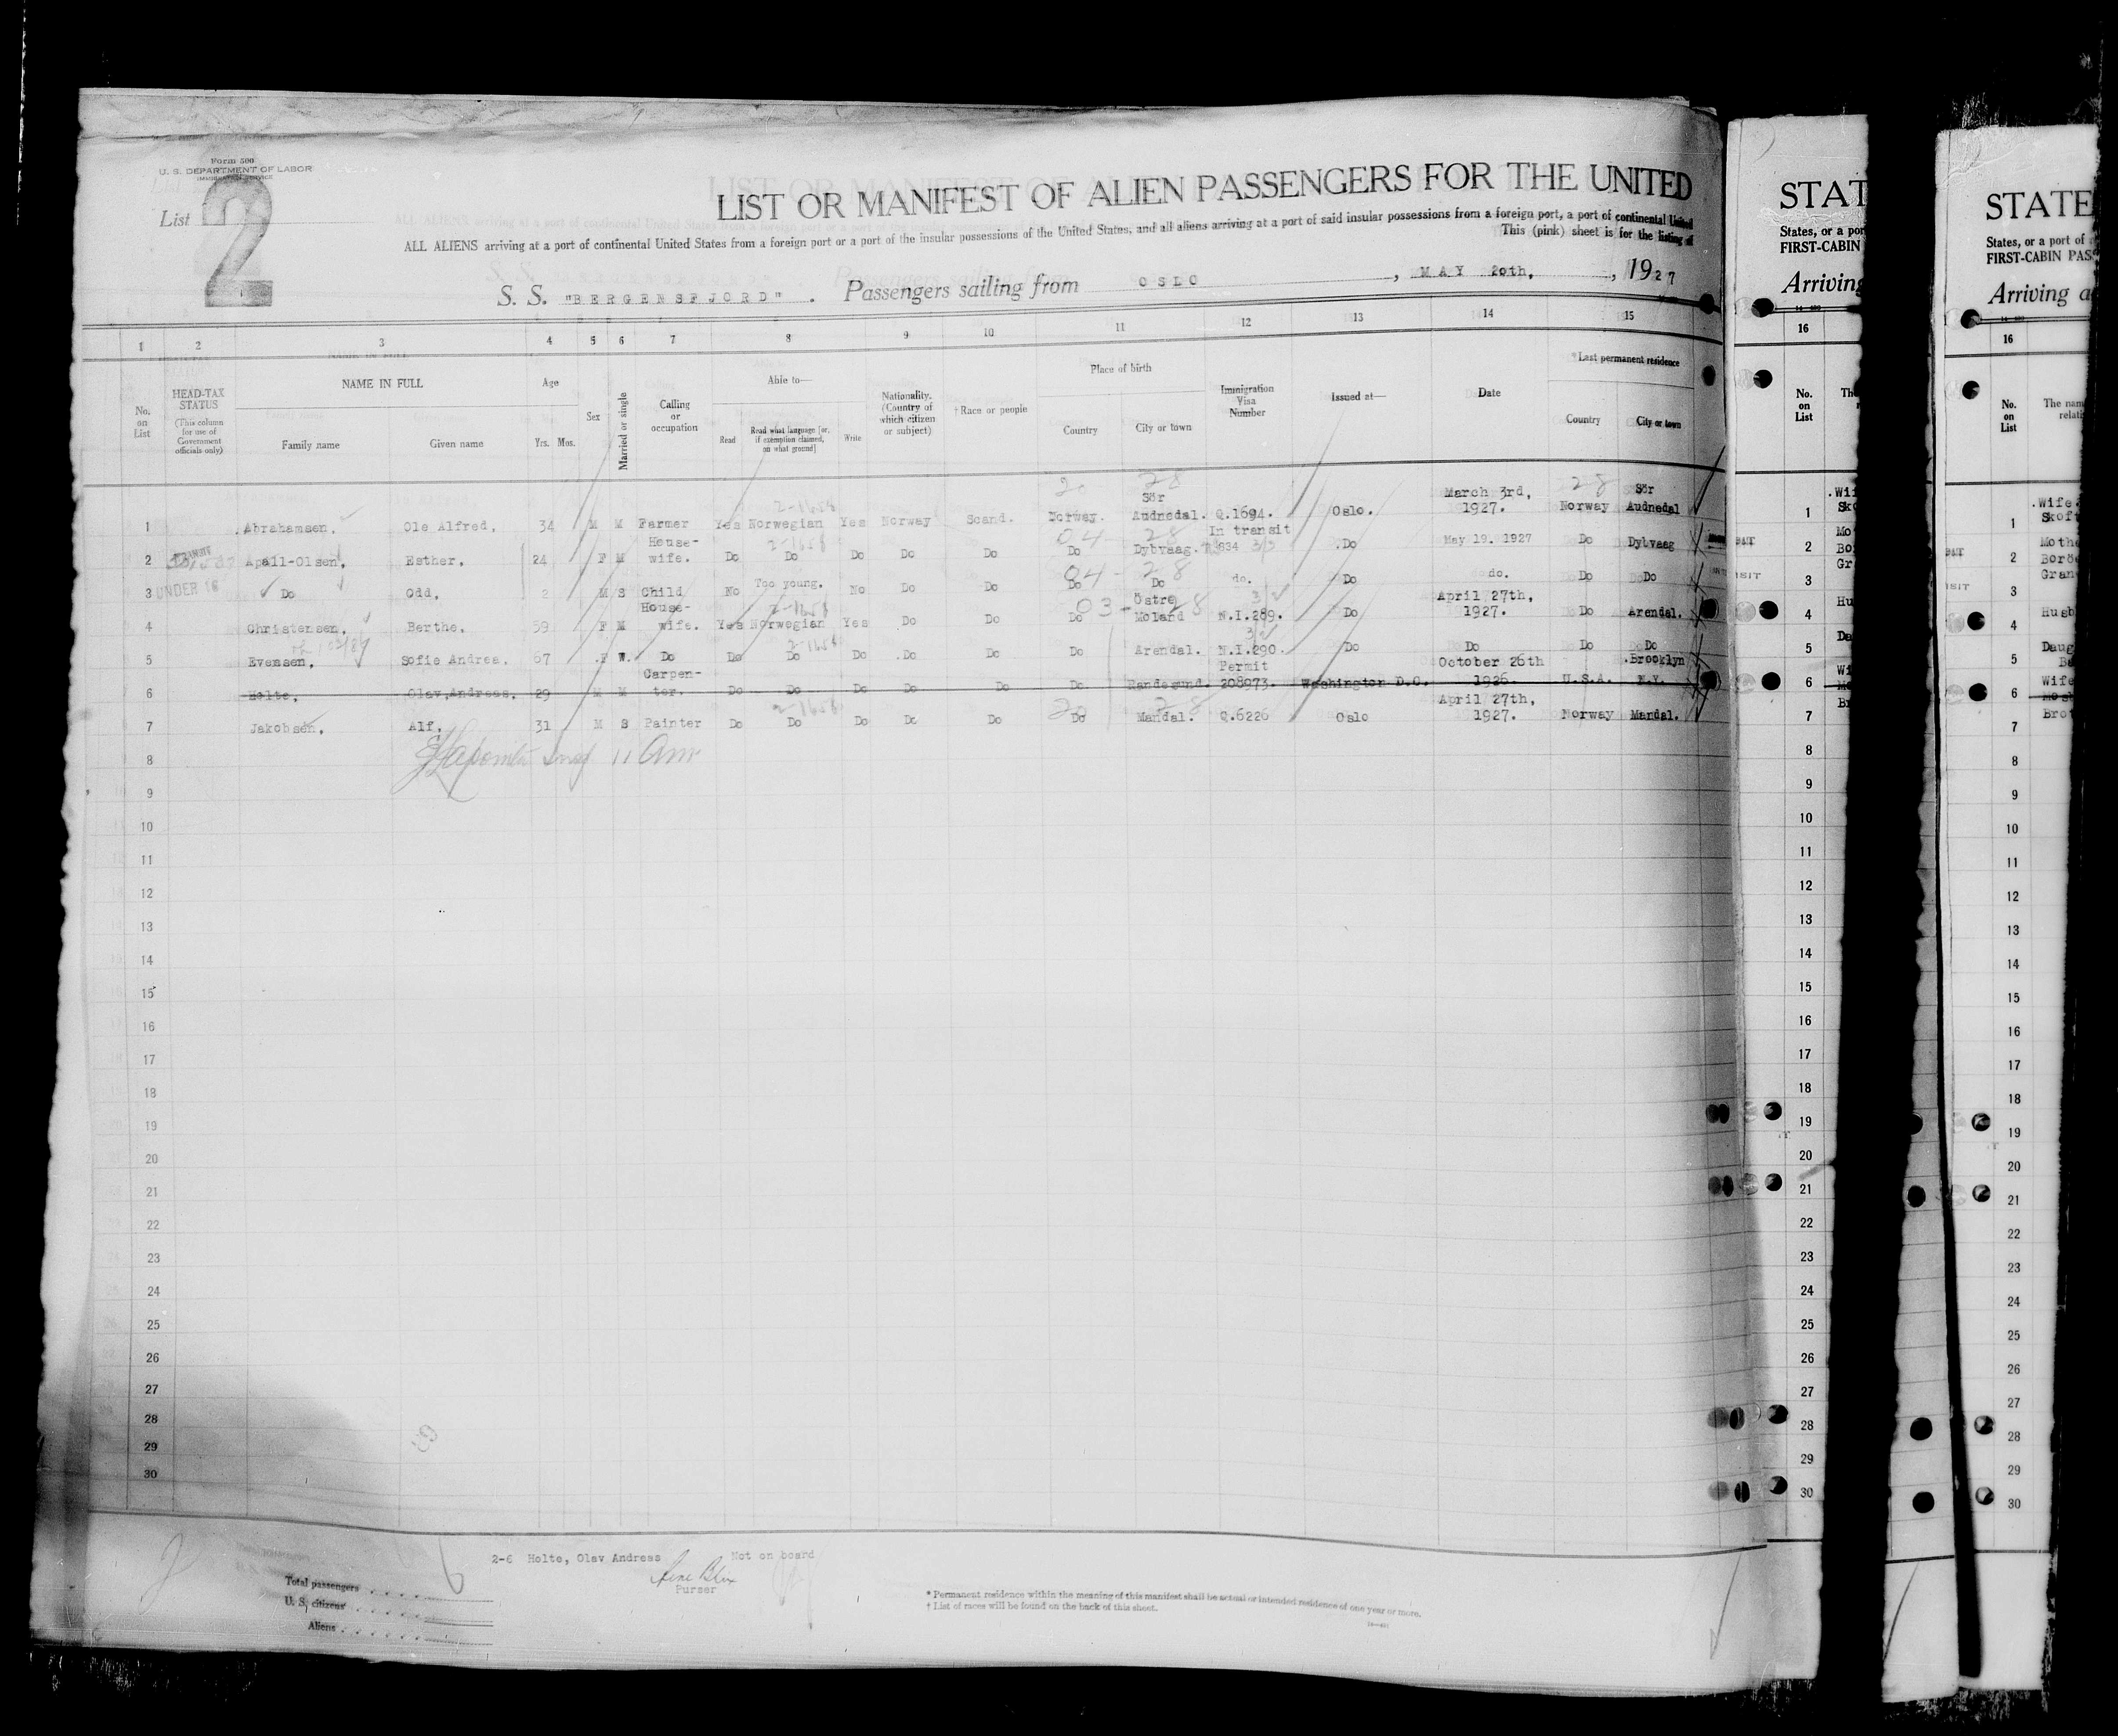 Form 500
U. S. DEPARTMENT OF LABOR
IMMIGRATION SERVICE
List 2
LIST OR MANIFEST OF ALIEN PASSENGERS FOR THE UNITED
ALL ALIENS arriving at a port of continental United States from a foreign port or a port of the insular possessions of the United States, and all aliens arriving at a port of said insular possessions from a foreign port, a port of continental United
This (pink) sheet is for the listing of
S. S. "BERGENSFJORD". Passengers sailing from OSLO, MAY 20th, 1927
1 2 3 4 5 6 7 8 9 10 11 12 13 14 15
No. on List
HEAD-TAX STATUS (This column for use of Government officials only)
NAME IN FULL
Family name Given name
Age
Yrs. Mos.
Sex
Married or single
Calling or occupation
Able to—
Read Read what language [or, if exemption claimed, on what ground] Write
Nationality. (Country of which citizen or subject)
†Race or people
Place of birth
Country City or town
Immigration Visa Number
Issued at—
Date
*Last permanent residence
Country City or town
1 Abrahamsen, Ole Alfred, 34 M M Farmer Yes Norwegian Yes Norway Scand. Norway. Sör Audnedal. Q.1694. Oslo. March 3rd, 1927. Norway Sör Audnedal
2 Apall-Olsen, Esther, 24 F M House-wife. Do Do Do Do Do Do Dybvaag. In transit 834 Do May 19. 1927 Do Dybvaag
3 UNDER 16 Do Odd, 2 M S Child No Too young. No Do Do Do Do do. Do do. Do Do
4 Christensen, Berthe, 59 F M House-wife. Yes Norwegian Yes Do Do Do Östre Moland N.I.289. Do April 27th, 1927. Do Arendal.
5 Evensen, Sofie Andrea, 67 F W. Do Do Do Do Do Do Do Arendal. N.I.290. Do Do Do Do
6 Holte, Olav Andreas, 29 M M Carpen-ter. Do Do Do Do Do Do Randesund. Permit 208973. Washington D.C. October 26th 1926. U.S.A. Brooklyn N.Y.
7 Jakobsen, Alf, 31 M S Painter Do Do Do Do Do Do Mandal. Q.6226 Oslo April 27th, 1927. Norway Mandal.
8
9
10
11
12
13
14
15
16
17
18
19
20
21
22
23
24
25
26
27
28
29
30
2-6 Holte, Olav Andreas Not on board
Purser
Total passengers
U. S. citizens
Aliens
* Permanent residence within the meaning of this manifest shall be actual or intended residence of one year or more.
† List of races will be found on the back of this sheet.
STAT
States, or a por
FIRST-CABIN
Arriving
16
No. on List
1
2
3
4
5
6
7
8
9
10
11
12
13
14
15
16
17
18
19
20
21
22
23
24
25
26
27
28
29
30
STATE
States, or a port of
FIRST-CABIN PAS
Arriving a
16
No. on List
The nam
relati
1 Wife
Skoft
2 Mothe
Borö
3 Gran
4 Husb
5 Daug
6 Wife
7 Brot
8
9
10
11
12
13
14
15
16
17
18
19
20
21
22
23
24
25
26
27
28
29
30